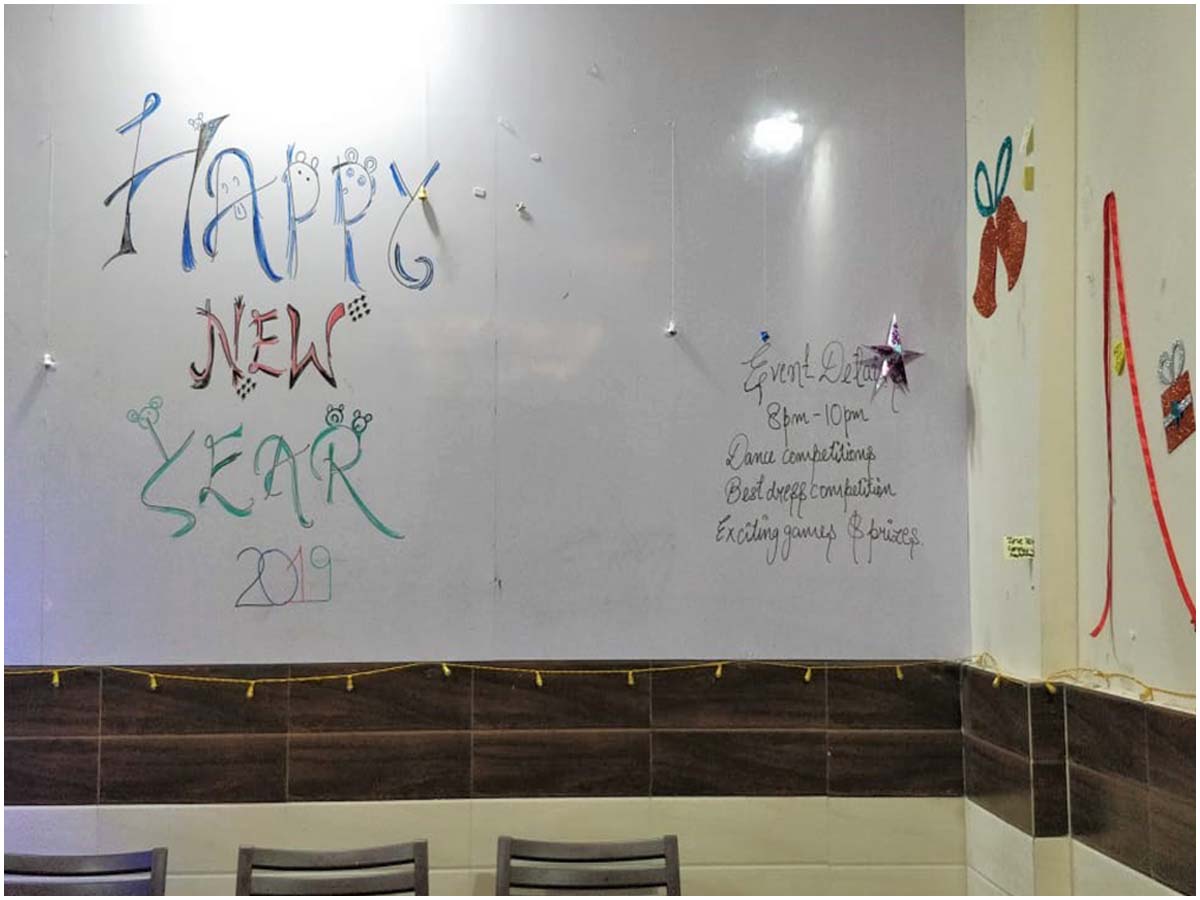 HAPPY
NEW
YEAR
2019
Event Detai
8pm-10pm
Dance competitions
Best dress competition
Exciting games & prizes.